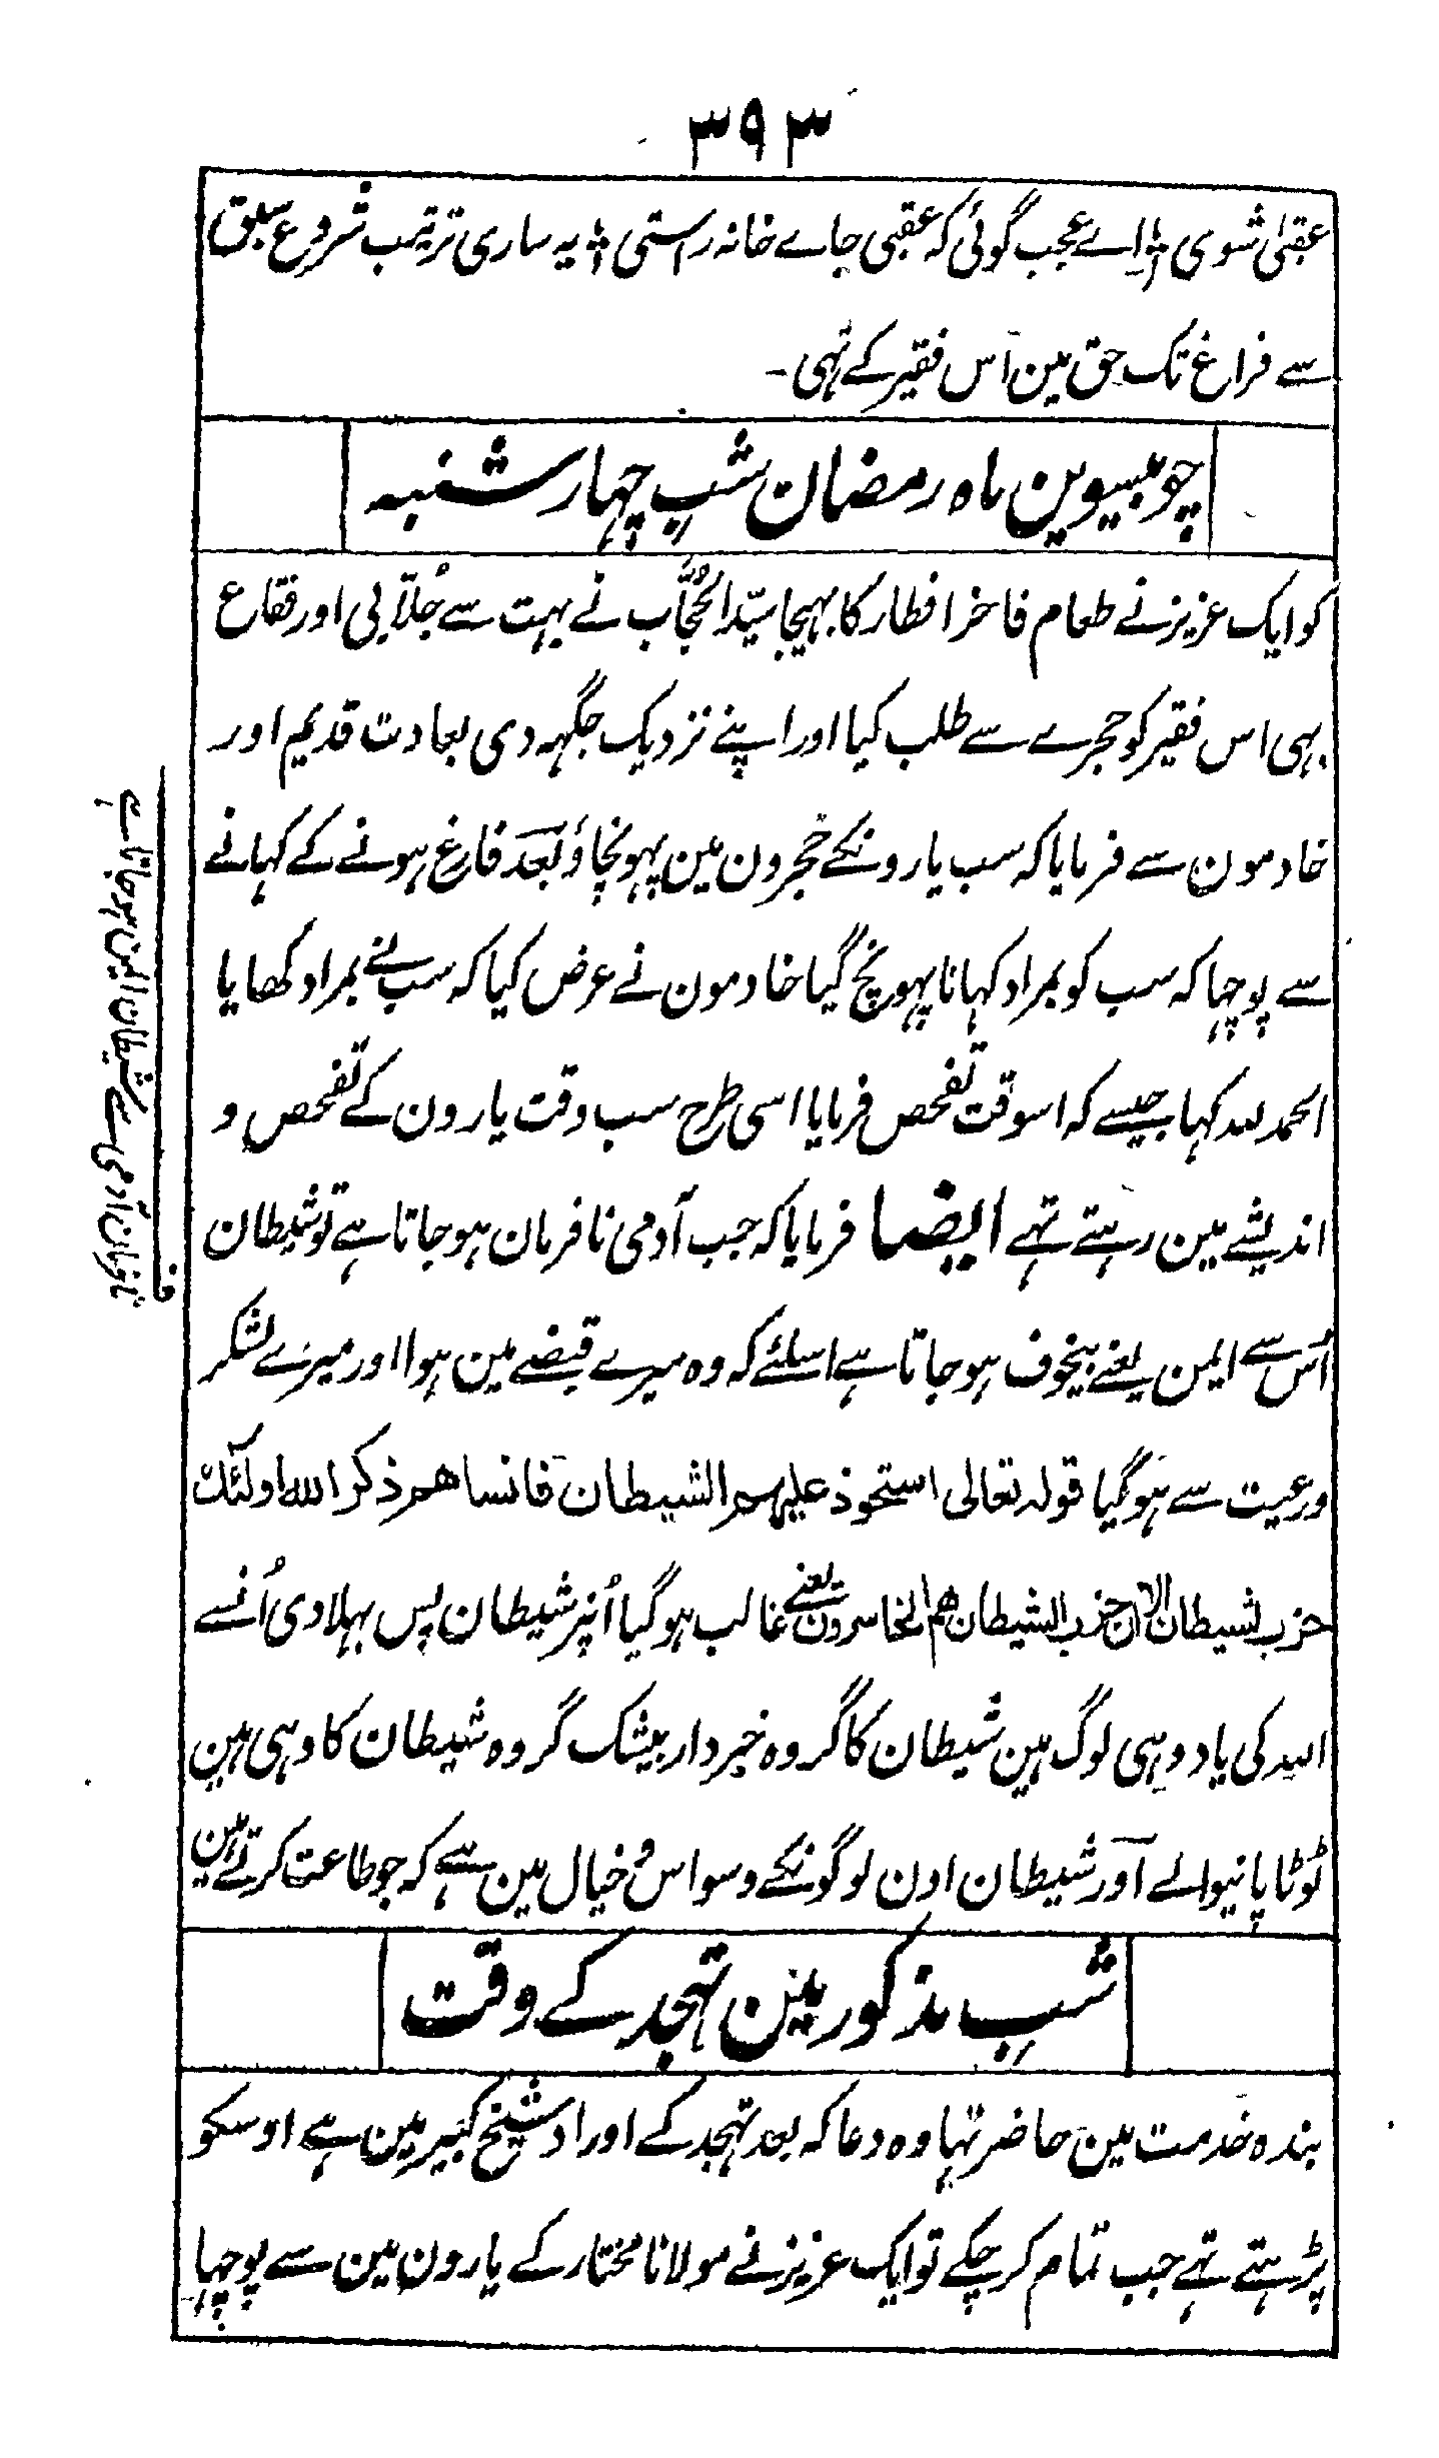 ۳۹۳
عقبیٰ شوی ؛ اے عجب گوئی کہ عقبی جاے خانہ راستی ؛ یہ ساری ترتیب شروع سبق
سے فراغ تک حق مین اس فقیر کے تہی ۔
چوبیسوین ماہ رمضان شبِ چہارشنبہ
کو ایک عزیز نے طعام فاخر افطار کا بہیجا سیّد الحُجّاب نے بہت سے جُلّابی اور فقاع
بہی اس فقیر کو حجرے سے طلب کیا اور اپنے نزدیک جگہہ دی بعادت قدیم اور
خادمون سے فرمایا کہ سب یارونکے حجرون مین پہونچاؤ بعد فارغ ہونے کے کہانے
سے پوچہا کہ سب کو بمراد کہانا پہونچ گیا خادمون نے عرض کیا کہ سب نے بمراد کھایا
الحمد للہ کہا جیسے کہ اسوقت تفحص فرمایا اسی طرح سب وقت یارون کے تفحص و
اندیشے مین رہتے تہے ایضا فرمایا کہ جب آدمی نافرمان ہو جاتا ہے تو شیطان
اُس سے ایمن یعنے بیخوف ہو جاتا ہے اسلئے کہ وہ میرے قبضے مین ہوا اور میرے لشکر
ورعیت سے ہو گیا قولہ تعالی استحوذ علیہم الشیطان فانساھم ذکر اللہ اولئک
حزب لشیطان الا ان حزب الشیطان ھم الخاسرون یعنے غالب ہو گیا اُنپر شیطان پس بہلا دی اُنسے
اللہ کی یاد وہی لوگ ہین شیطان کا گروہ خبردار بیشک گروہ شیطان کا وہی ہین
ٹوٹا پانیوالے اور شیطان اون لوگونکے وسواس و خیال مین ہے کہ جو طاعت کرتے ہین
شبِ مذکور مین تہجد کے وقت
بندہ خدمت مین حاضر تہا وہ دعا کہ بعد تہجد کے اوراد شیخ کبیر مین ہے اوسکو
پڑہتے تہے جب تمام کر چکے تو ایک عزیز نے مولانا مختار کے یارون مین سے پوچہا
ف
نافرمان آدمی سے شیطان ایمن ہو جاتا ہے